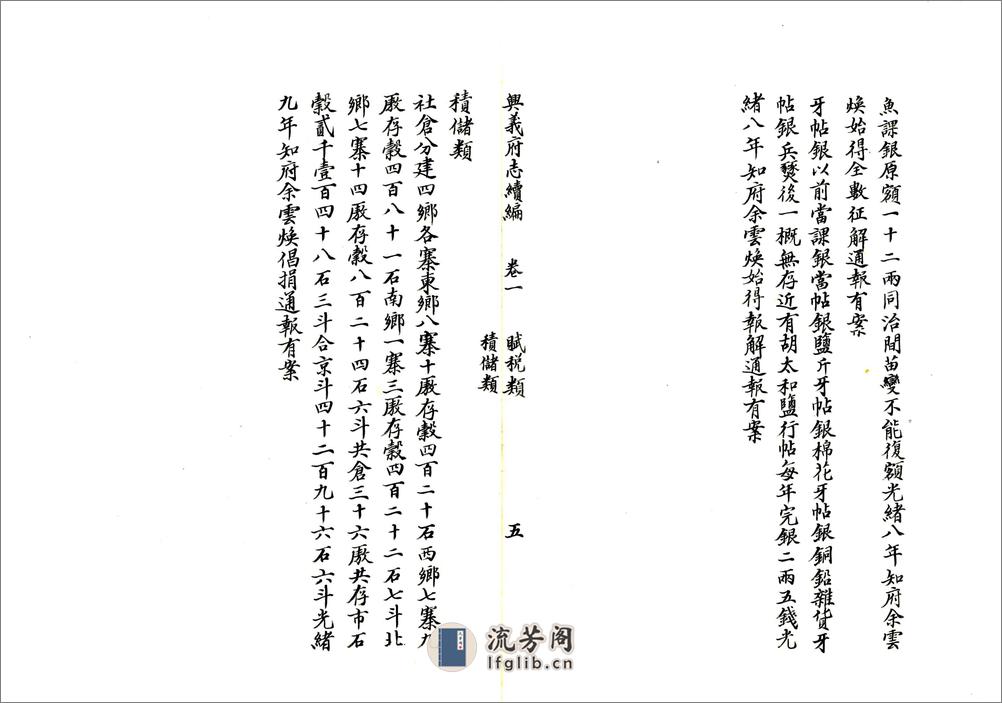 魚課銀原額一十二兩同治間苗變不能復額光緒八年知府余雲
煥始得全數征解通報有案
牙帖銀以前當課銀當帖銀鹽斤牙帖銀棉花牙帖銀銅鉛雜貨牙
帖銀兵燹後一概無存近有胡太和鹽行帖每年完銀二兩五錢光
緒八年知府余雲煥始得報解通報有案
興義府志續編 卷一 賦稅類 五
積儲類
積儲類
社倉分建四鄉各寨東鄉八寨十廒存穀四百二十石西鄉七寨九
廒存穀四百八十一石南鄉一寨三廒存穀四百二十二石七斗北
鄉七寨十四廒存穀八百二十四石六斗共倉三十六廒共存市石
穀貳千壹百四十八石三斗合京斗四十二百九十六石六斗光緒
九年知府余雲煥倡捐通報有案
流芳阁
lfglib.cn